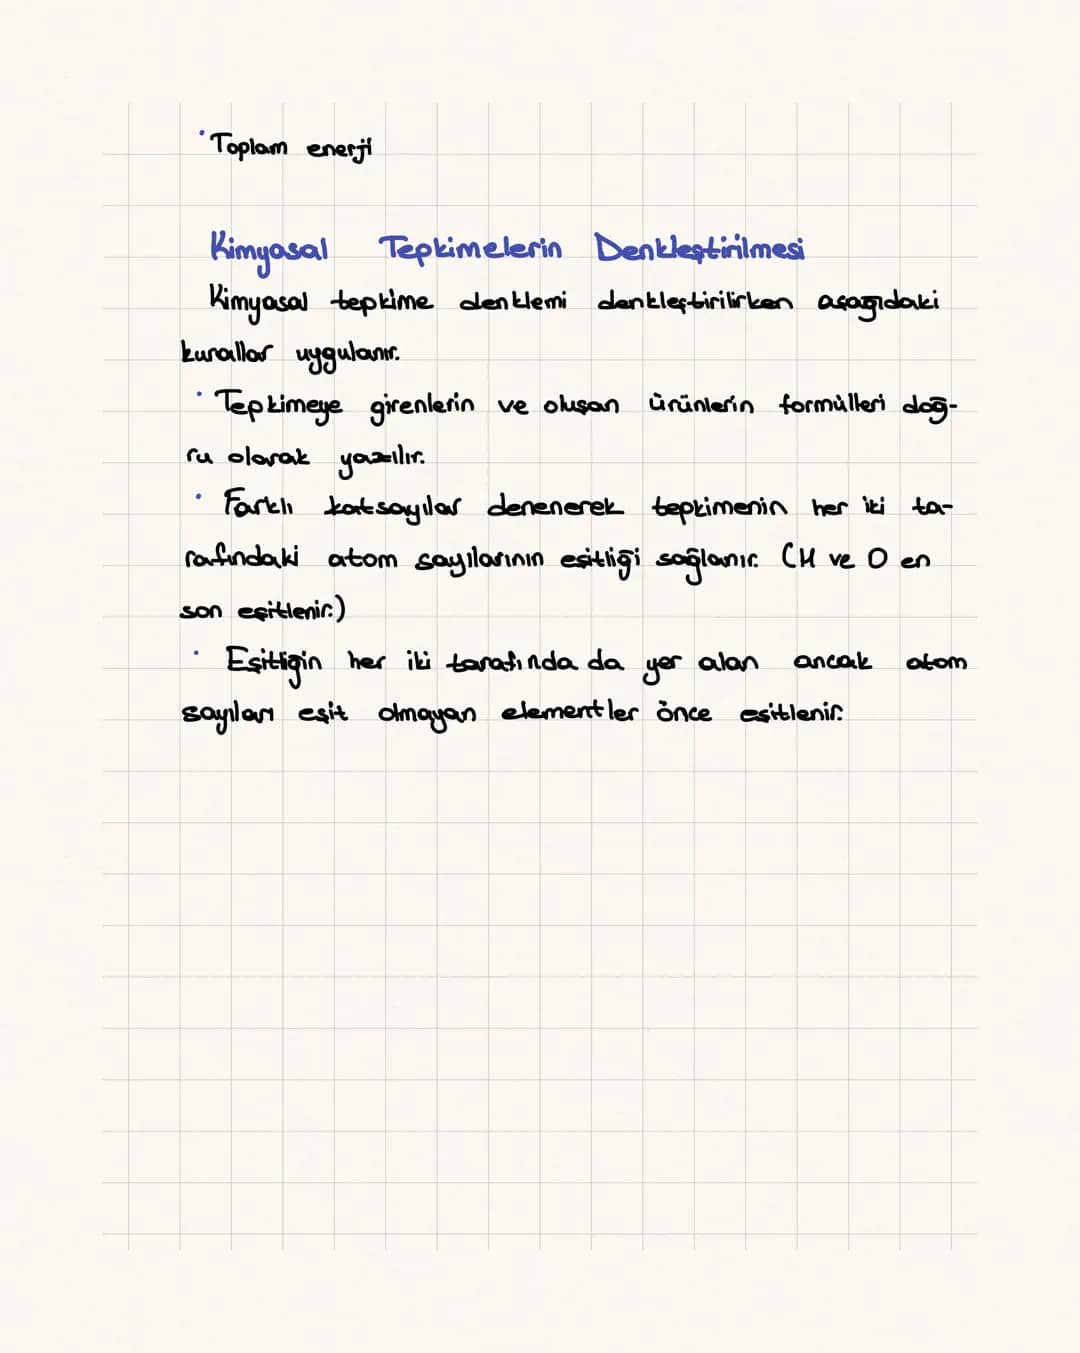 • Toplam enerji
Kimyasal Tepkimelerin Denkleştirilmesi
Kimyasal tepkime denklemi denkleştirilirken aşağıdaki
kurallar uygulanır.
• Tepkimeye girenlerin ve oluşan ürünlerin formülleri doğ-
ru olarak yazılır.
• Farklı katsayılar denenerek tepkimenin her iki ta-
rafındaki atom sayılarının eşitliği sağlanır. (H ve O en
son eşitlenir.)
• Eşitliğin her iki tarafında da yer alan ancak atom
sayıları eşit olmayan elementler önce eşitlenir.